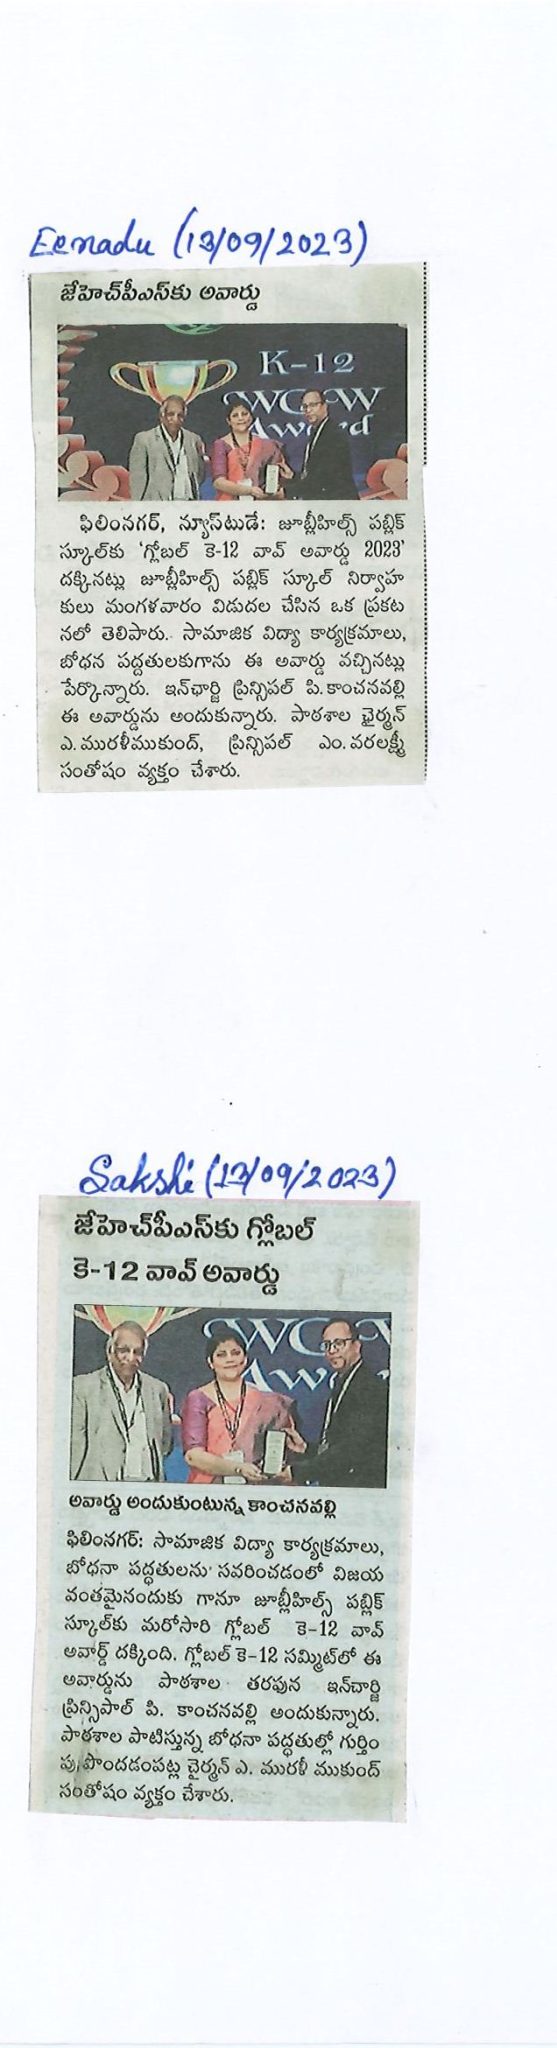 Eenadu (13/09/2023)
జేహెచ్‌పీఎస్‌కు అవార్డు
K-12
WOW
Award
ఫిలింనగర్, న్యూస్‌టుడే: జూబ్లీహిల్స్ పబ్లిక్
స్కూల్‌కు 'గ్లోబల్ కె-12 వావ్ అవార్డు 2023'
దక్కినట్లు జూబ్లీహిల్స్ పబ్లిక్ స్కూల్ నిర్వాహ
కులు మంగళవారం విడుదల చేసిన ఒక ప్రకట
నలో తెలిపారు. సామాజిక విద్యా కార్యక్రమాలు,
బోధన పద్దతులకుగాను ఈ అవార్డు వచ్చినట్లు
పేర్కొన్నారు. ఇన్‌ఛార్జి ప్రిన్సిపల్ పి.కాంచనవల్లి
ఈ అవార్డును అందుకున్నారు. పాఠశాల ఛైర్మన్
ఎ.మురళీముకుంద్, ప్రిన్సిపల్ ఎం.వరలక్ష్మీ
సంతోషం వ్యక్తం చేశారు.
Sakshi (13/09/2023)
జేహెచ్‌పీఎస్‌కు గ్లోబల్
కె-12 వావ్ అవార్డు
WOW
Award
అవార్డు అందుకుంటున్న కాంచనవల్లి
ఫిలింనగర్: సామాజిక విద్యా కార్యక్రమాలు,
బోధనా పద్ధతులను సవరించడంలో విజయ
వంతమైనందుకు గానూ జూబ్లీహిల్స్ పబ్లిక్
స్కూల్‌కు మరోసారి గ్లోబల్ కె-12 వావ్
అవార్డ్ దక్కింది. గ్లోబల్ కె-12 సమ్మిట్‌లో ఈ
అవార్డును పాఠశాల తరపున ఇన్‌చార్జి
ప్రిన్సిపాల్ పి. కాంచనవల్లి అందుకున్నారు.
పాఠశాల పాటిస్తున్న బోధనా పద్ధతుల్లో గుర్తిం
పు పొందడంపట్ల చైర్మన్ ఎ. మురళీ ముకుంద్
సంతోషం వ్యక్తం చేశారు.